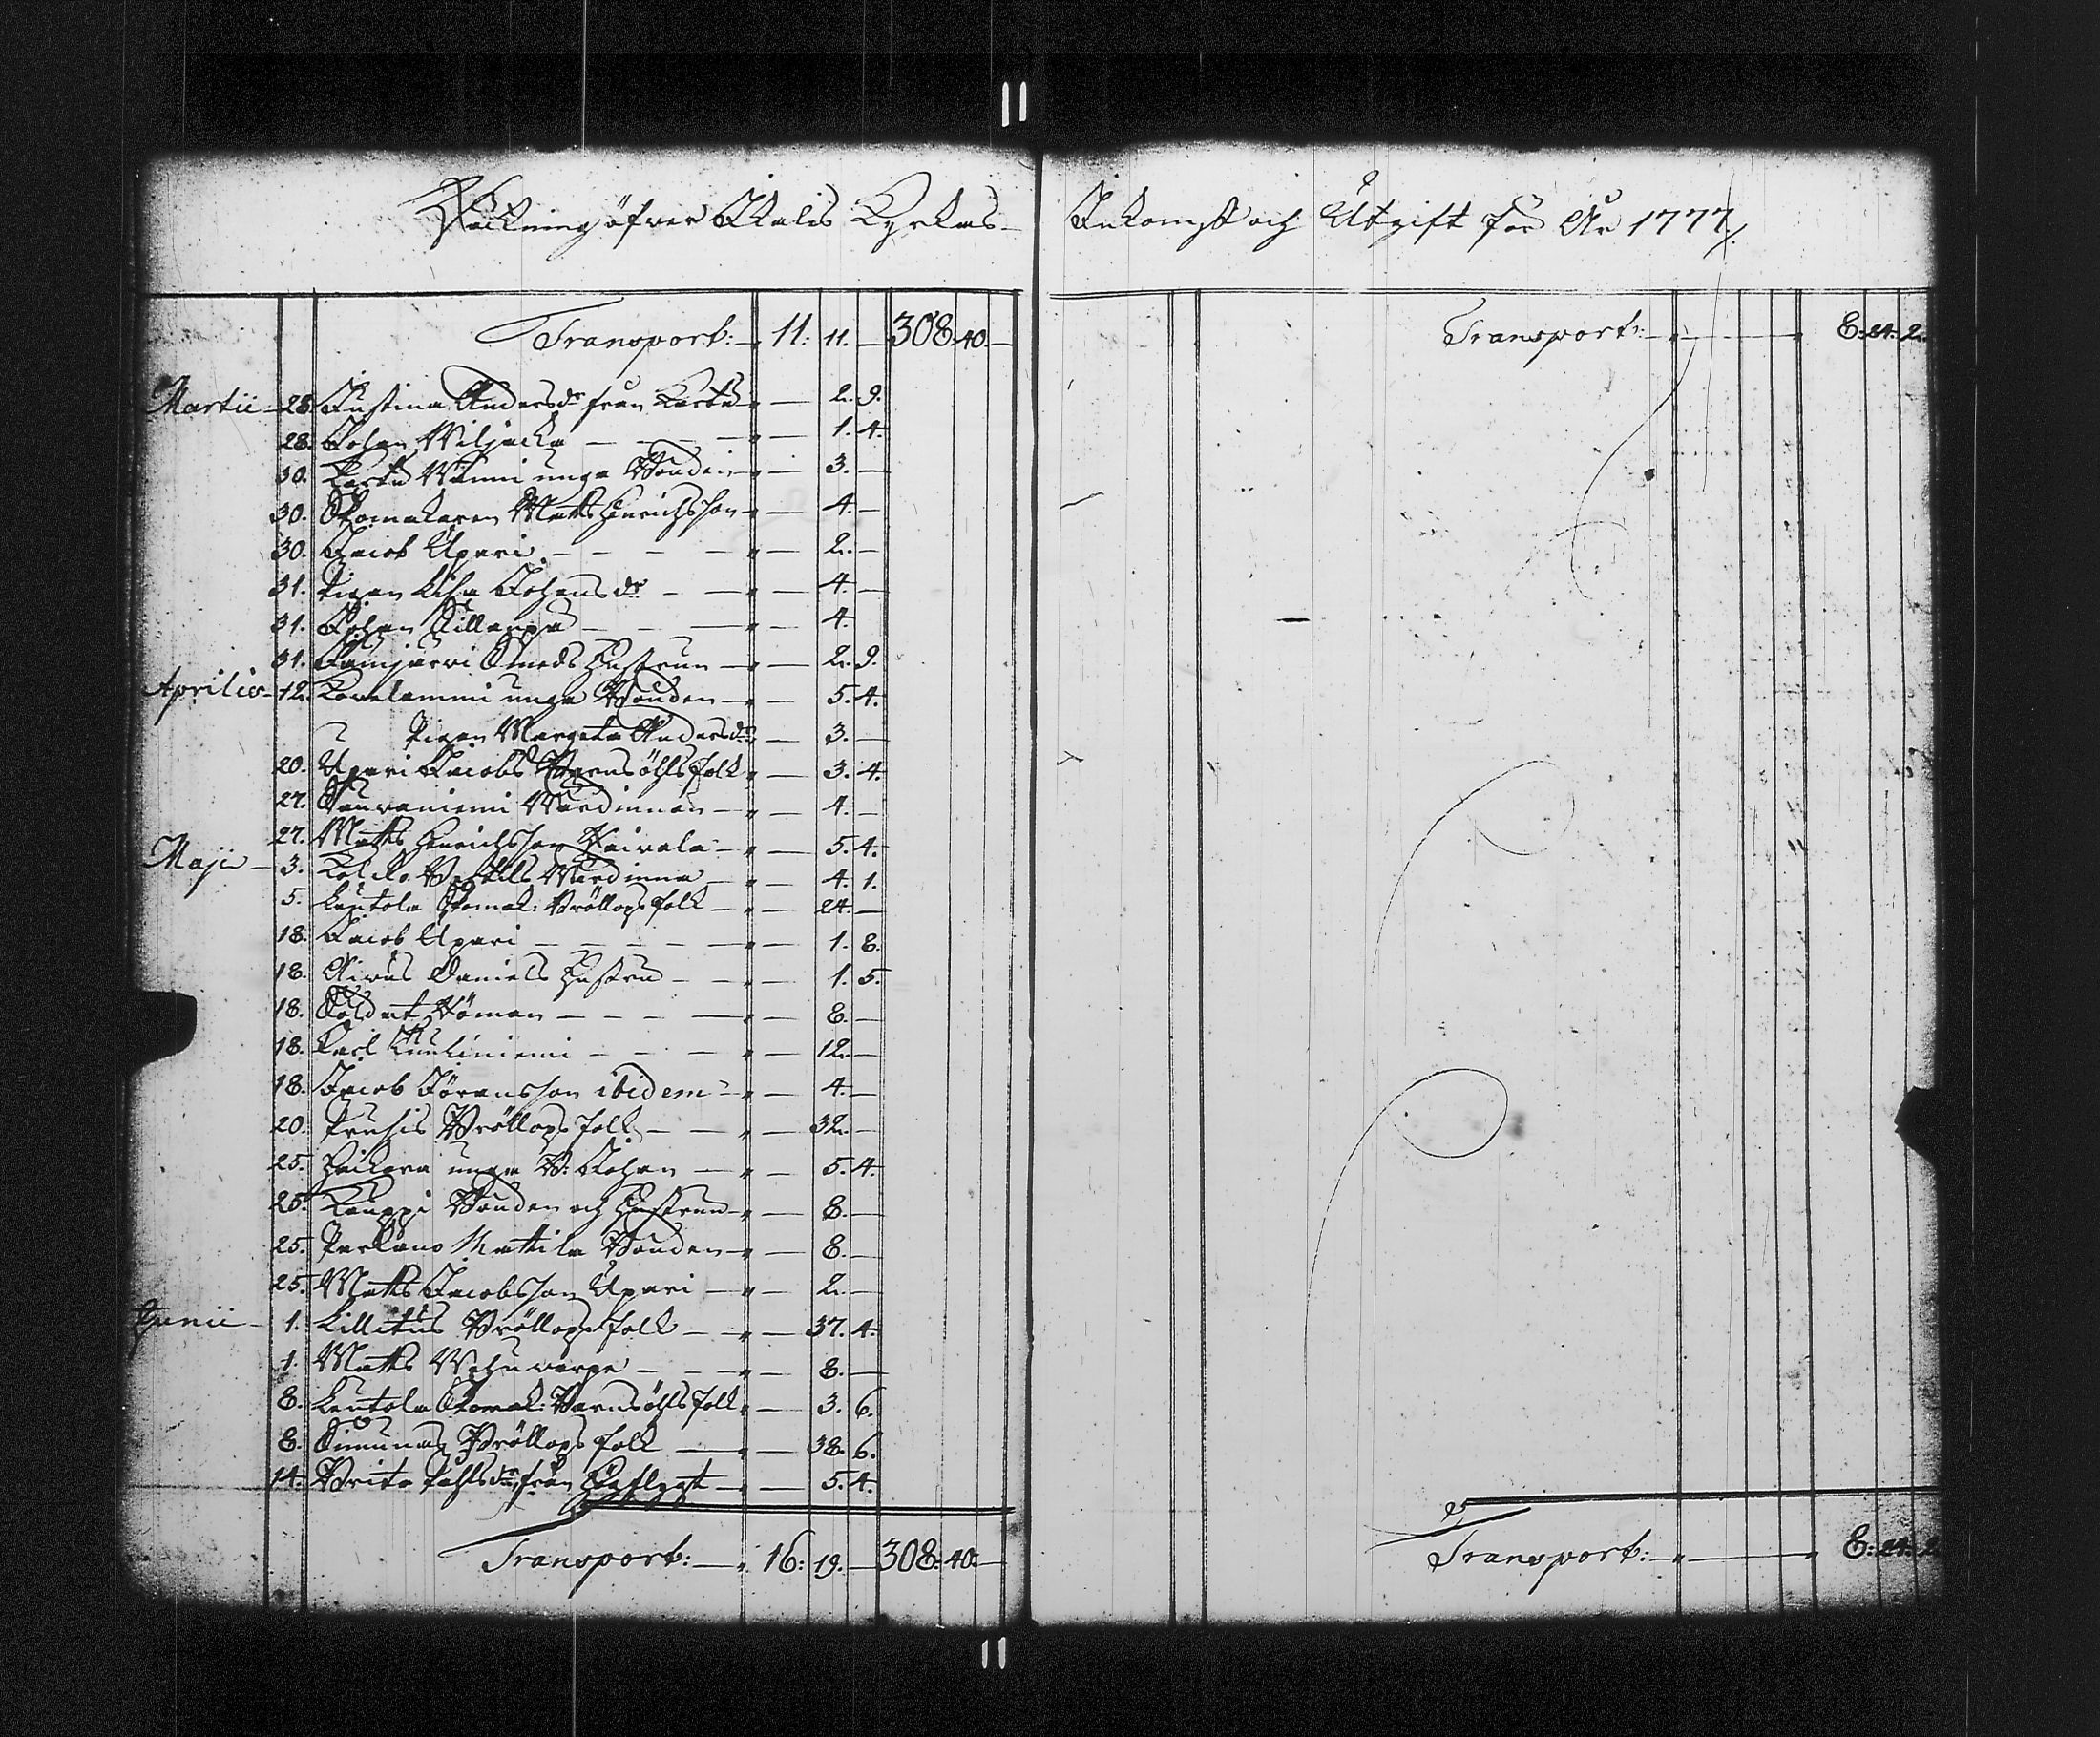 11
Räkning öfver Ikalis Kyrkas Inkomst och Utgift för År 1777/.
Transport: — „ 11: 11. — 308: 40. —
Martii — 28. Justina Andersdr från Kartu „ — 2. 9.
28. Johan Wiljacka — — — „ — 1. 4.
30. Kartu Wänni unga Bonden „ — 3. —
30. Skomakaren Matts Henrichsson „ — 4. —
30. Jacob Upari — — — — „ — 2. —
31. Pigan Lisa Johansdr — — „ — 4. —
31. Johan Sillanpä — — — „ — 4.
31. Jämijärvi Smeds Hustrun — „ — 2. 9.
Aprilis — 12. Kovelammi unga Bonden — „ — 5. 4.
Pigan Margeta Andersdr „ — 3. —
20. Upari Jacobs Barnsöhls folk „ — 3. 4.
27. Sauvaniemi Wärdinnan — „ — 4. —
27. Matts Henrichsson Päivola — „ — 5. 4.
Maji — 3. Wärdinna — „ — 4. 1.
5. Leutola Skomak: Bröllops folk — „ — 24. —
18. Jacob Upari — — — — „ — 1. 8.
18. Daniels Hustru — — „ — 1. 5.
18. Soldat Töman — — — — „ — 8. —
18. Carl — — — „ — 12. —
18. Jacob Jöransson ibidem — „ — 4. —
20. Bröllops folk — — „ — 32. —
25. Heikora unga B: Johan — „ — 5. 4.
25. Kauppi Bonden och Hustrun — „ — 8. —
25. Parkano Mattila Bonden — „ — 8. —
25. Matts Jacobsson Upari — „ — 2. —
Junii — 1. Lillitus Bröllops folk — „ — 37. 4.
1. Matts — — — „ — 8. —
8. Leutola Skomak: Barnsöhls folk „ — 3. 6.
8. Simunas Bröllops folk — „ — 38. 6.
14. Brita Påhlsdr från — „ — 5. 4.
Transport: — „ 16: 19. — 308: 40: —
Transport: — „ — „ 8: 24: 2.
Transport: — „ — „ 8: 24: 2.
11